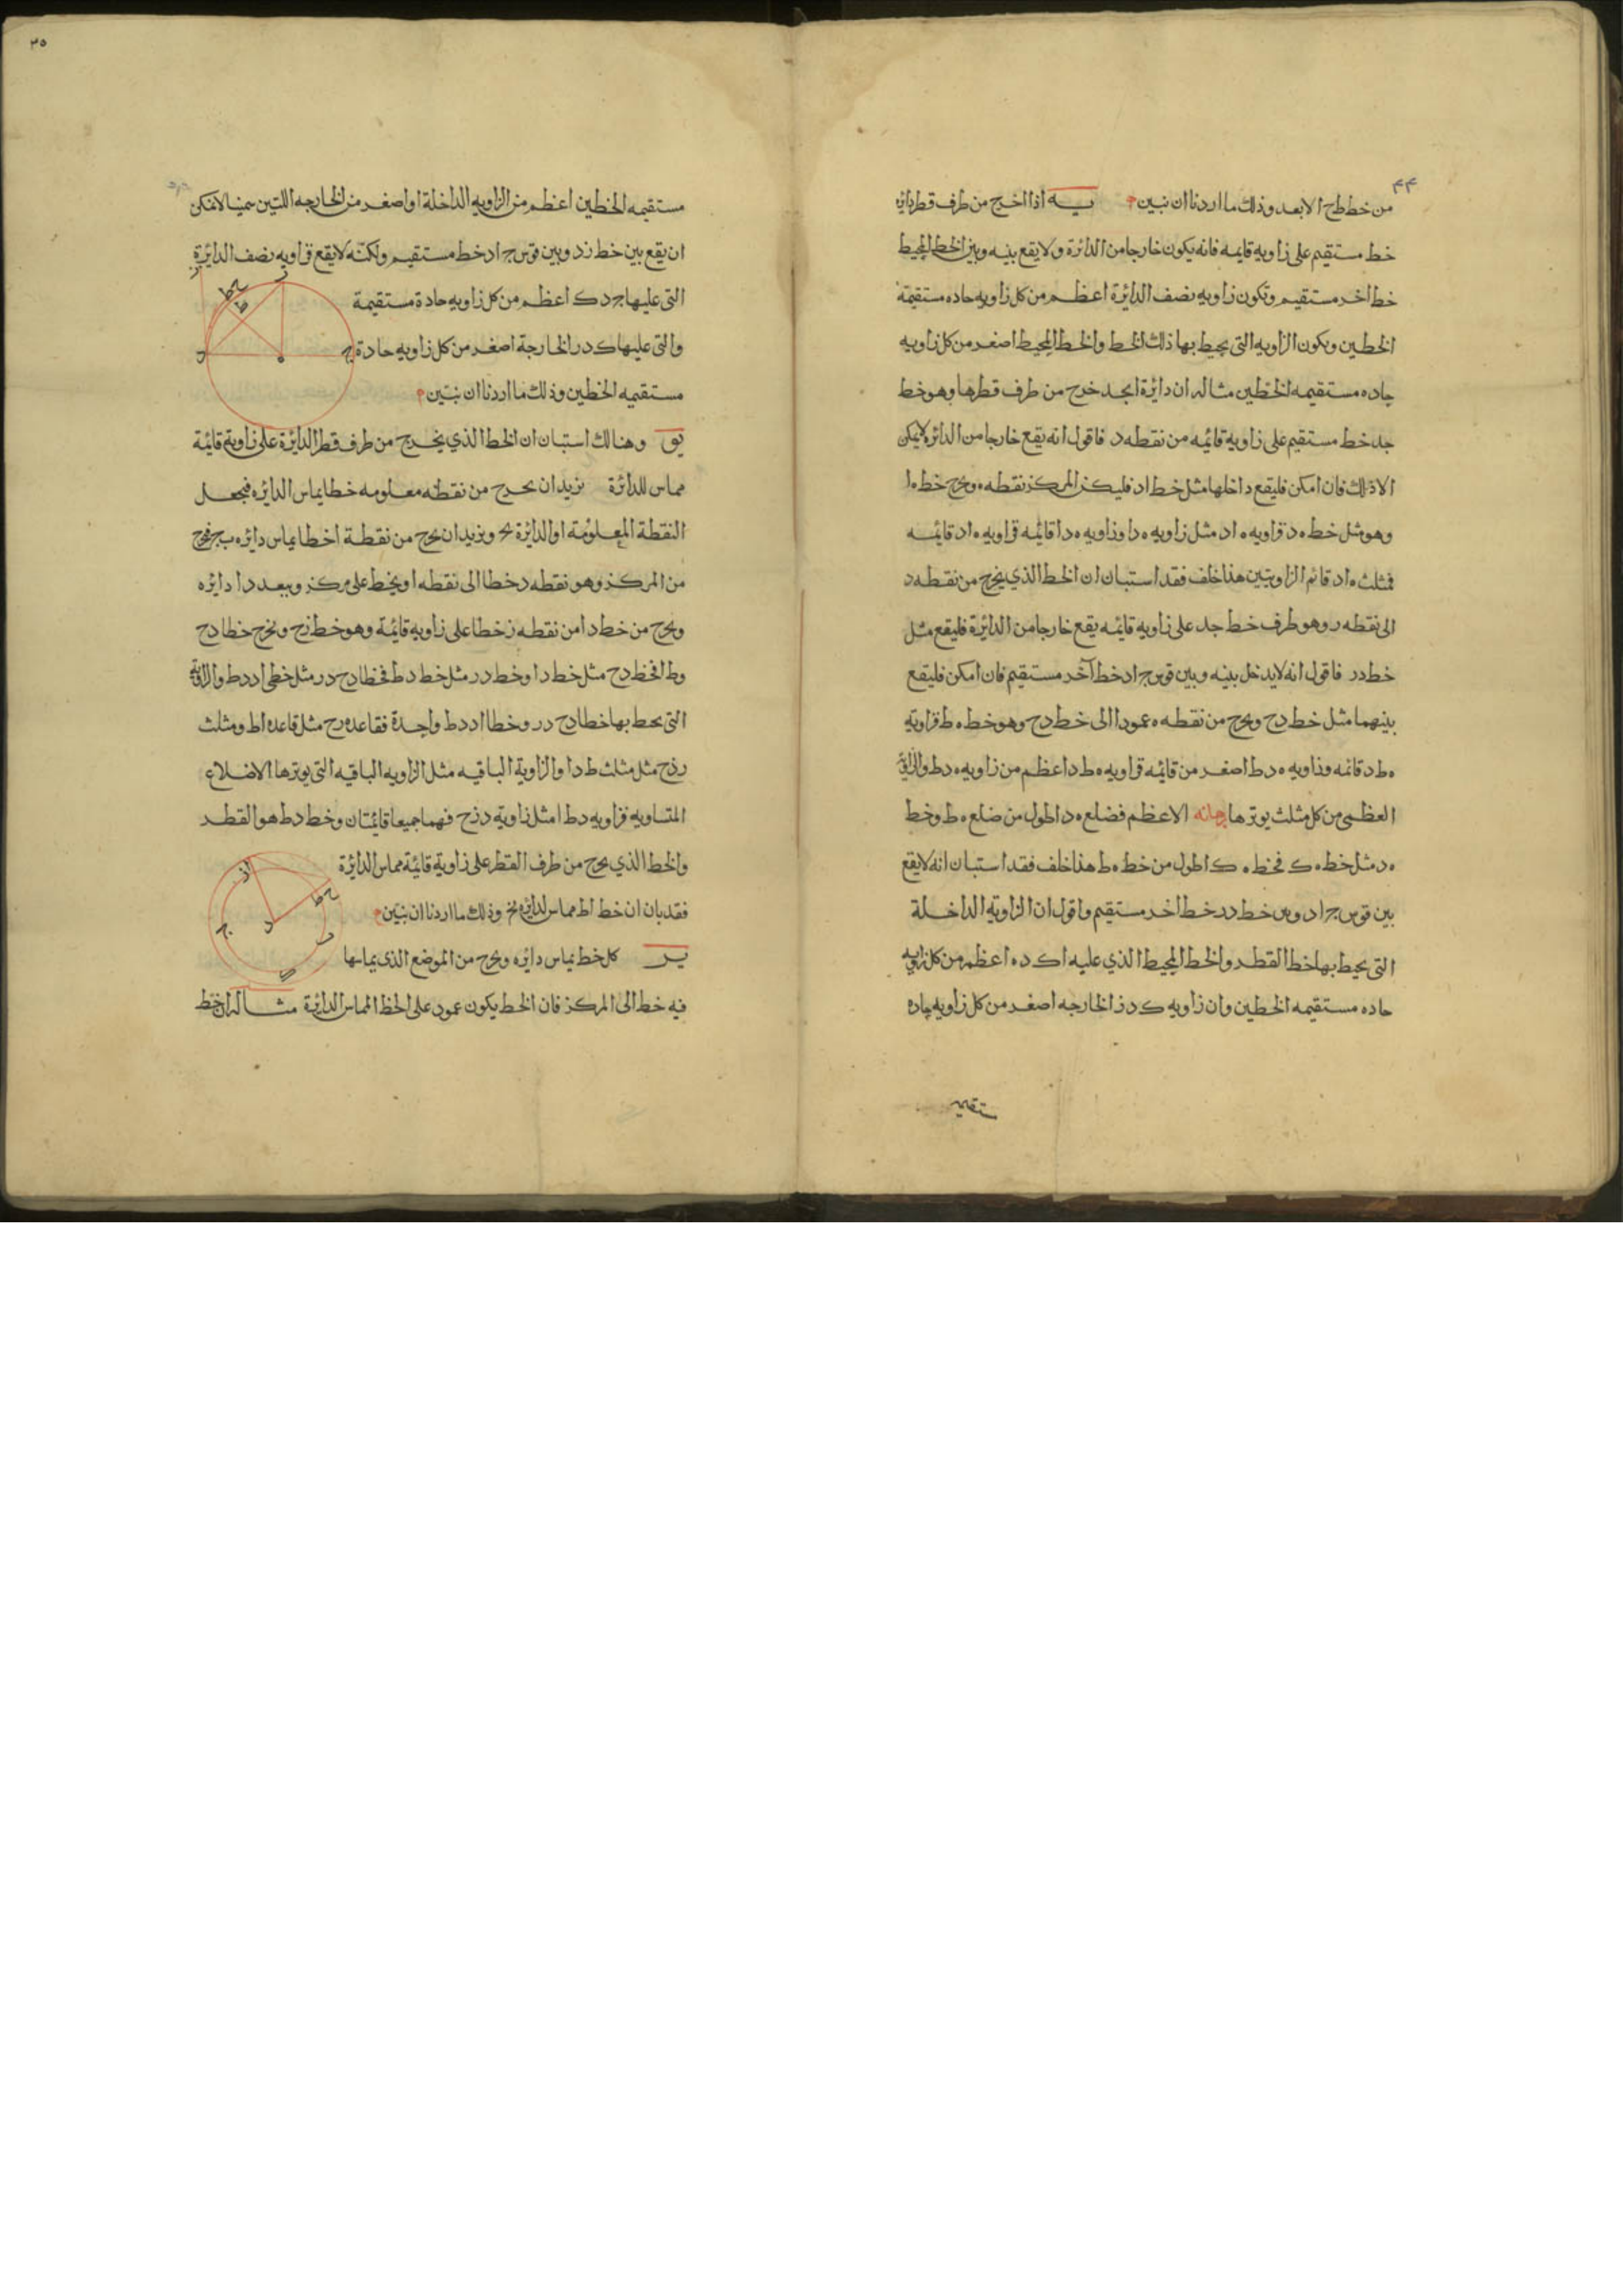 ۴۴
من خط طح الابعد وذلك ما اردنا ان نبين يه اذا اخرج من طرف قطر دائرة
خط مستقيم على زاويه قايمه فانه يكون خارجا من الدائرة ولا يقع بينه وبين الخط المحيط
خط اخر مستقيم وتكون زاويه نصف الدائرة اعظم من كل زاويه حاده مستقيمة
الخطين ويكون الزاويه التى يحيط بها ذلك الخط والخط المحيط اصغر من كل زاويه
حاده مستقيمه الخطين مثاله ان دايرة ابجد خرج من طرف قطرها وهو خط
جد خط مستقيم على زاويه قائمه من نقطه د فاقول انه يقع خارجا من الدائره لايمكن
الا ذلك فان امكن فليقع داخلها مثل خط اد فليكن المركز نقطه ه ونخرج خط ه ا
وهو مثل خط ه د فزاويه ه اد مثل زاويه ه دا وزاويه ه دا قائمه فزاويه ه اد قائمه
فمثلث ه اد قائم الزاويتين هذا خلف فقد استبان ان الخط الذي يخرج من نقطه د
الى نقطه ر وهو طرف خط جد على زاويه قائمه يقع خارجا من الدائرة فليقع مثل
خط در فاقول انه لا يدخل بينه وبين قوس ج اد خط آخر مستقيم فان امكن فليقع
بينهما مثل خط دح ويخرج من نقطه ه عمودا الى خط دح وهو خط ه ط فزاويه
ه ط د قائمه وزاويه ه د ط اصغر من قايمه فزاويه ه ط د اعظم من زاويه ه د ط والزاوية
العظمى من كل مثلث يوترها الاعظم فضلع ه د اطول من ضلع ه ط وخط
ه د مثل خط ه ك فخط ه ك اطول من خط ه ط هذا خلف فقد استبان انه لا يقع
بين قوس ج اد وبين خط در خط اخر مستقيم واقول ان الزاويه الداخلة
التى يحيط بها خط القطر والخط المحيط الذي عليه اك د ه اعظم من كل زاويه
حاده مستقيمه الخطين وان زاويه ك د ز الخارجه اصغر من كل زاويه حاده
مستقيمه
۳۵
مستقيمه الخطين اعظم من الزاويه الداخلة او اصغر من الخارجه اللتين سمينا لامكن
ان يقع بين خط زد وبين قوس ج اد خط مستقيم ولكنه لا يقع فزاويه نصف الدائرة
التى عليها ج د ك اعظم من كل زاويه حادة مستقيمة
والتى عليها ك د ر الخارجة اصغر من كل زاويه حادة
مستقيمه الخطين وذلك ما اردنا ان نبين
يو وهنالك استبان ان الخط الذي يخرج من طرف قطر الدائرة على زاوية قائمة
مماس للدائرة نريد ان نخرج من نقطه معلومه خطا يماس الدائره فنجعل
النقطة المعلومة ا والدائرة بج ونريد ان نخرج من نقطة ا خطا يماس دائره ب ج فنخرج
من المركز وهو نقطه د خطا الى نقطه ا ويخط على مركز د وببعد د ا دايره
ونخرج من خط دا من نقطه ز خطا على زاويه قائمة وهو خط زح ونخرج خطا دح
وط ا فخط دح مثل خط دا وخط در مثل خط دط فخطا دح در مثل خطى اد دط والزاوية
التى يحيط بها خطا دح در وخطا اد دط واحدة فقاعده رح مثل قاعده اط ومثلث
ر د ح مثل مثلث ط دا والزاوية الباقيه مثل الزاويه الباقيه التى يوترها الاضلاع
المتساويه فزاويه دط ا مثل زاوية د ز ح فهما جميعا قائمتان وخط دط هو القطر
والخط الذي يخرج من طرف القطر على زاوية قائمة مماس الدائرة
فقد بان ان خط اط مماس لدائره بج وذلك ما اردنا ان نبين
يز كل خط يماس دايره ويخرج من الموضع الذى يماسها
فيه خط الى المركز فان الخط يكون عمود على الخط المماس الدائرة مثاله ان خط